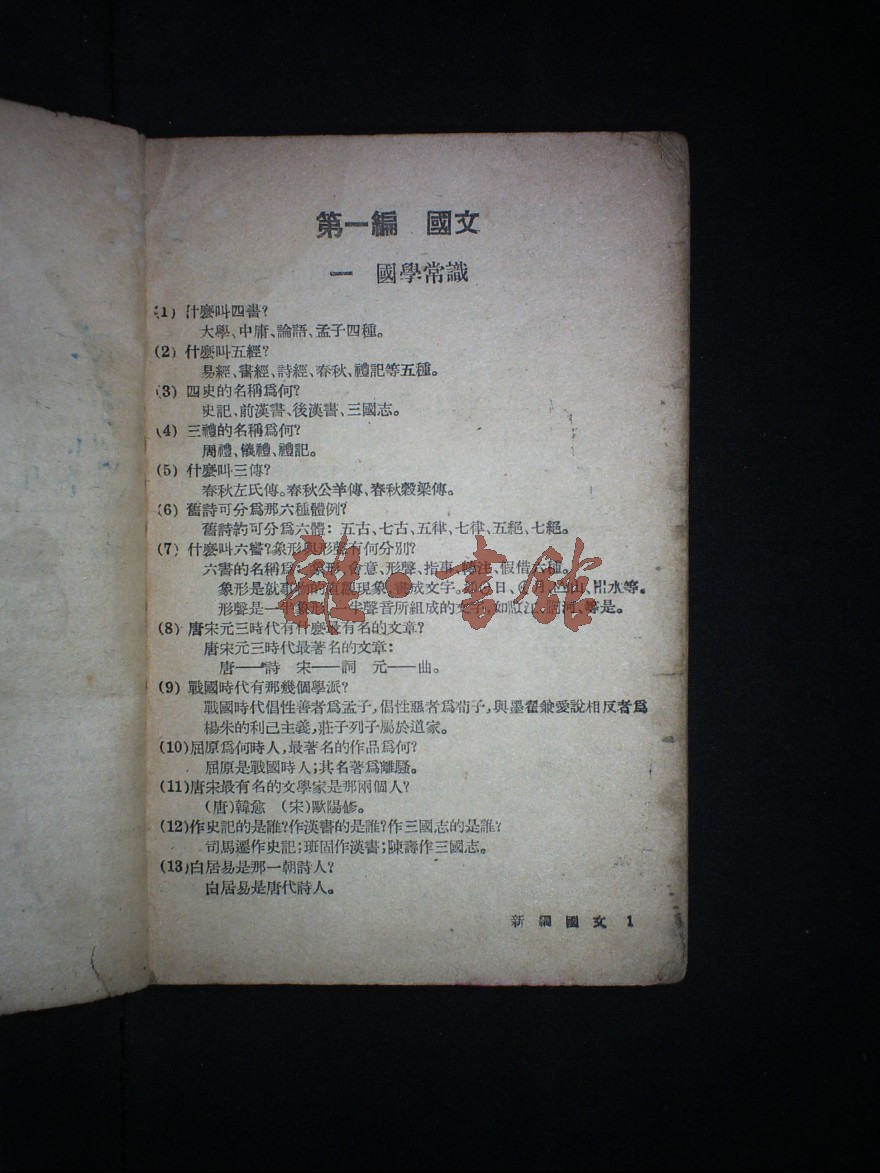 第一編 國文
一 國學常識
(1) 什麼叫四書?
大學、中庸、論語、孟子四種。
(2) 什麼叫五經?
易經、書經、詩經、春秋、禮記等五種。
(3) 四史的名稱爲何?
史記、前漢書、後漢書、三國志。
(4) 三禮的名稱爲何?
周禮、儀禮、禮記。
(5) 什麼叫三傳?
春秋左氏傳。春秋公羊傳、春秋穀梁傳。
(6) 舊詩可分爲那六種體例?
舊詩約可分爲六體:五古、七古、五律、七律、五絕、七絕。
(7) 什麼叫六書?象形與形聲有何分別?
六書的名稱爲:象形、會意、形聲、指事、轉注、假借六種。
象形是就事物的直觀現象,畫成文字。
形聲是一半象形,一半聲音所組成的文字,如江、河、等是。
(8) 唐宋元三時代有什麼最有名的文章?
唐宋元三時代最著名的文章:
唐——詩 宋——詞 元——曲。
(9) 戰國時代有那幾個學派?
戰國時代倡性善者爲孟子,倡性惡者爲荀子,與墨翟兼愛說相反者爲
楊朱的利己主義,莊子列子屬於道家。
(10)屈原爲何時人,最著名的作品爲何?
屈原是戰國時人;其名著爲離騷。
(11)唐宋最有名的文學家是那兩個人?
(唐)韓愈 (宋)歐陽修。
(12)作史記的是誰?作漢書的是誰?作三國志的是誰?
司馬遷作史記;班固作漢書;陳壽作三國志。
(13)白居易是那一朝詩人?
白居易是唐代詩人。
新編國文 1
雜·書館